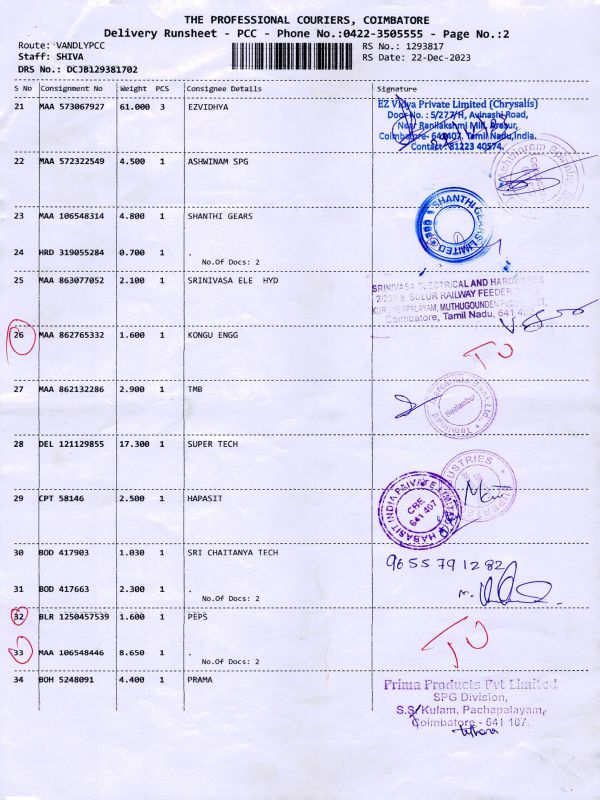 THE PROFESSIONAL COURIERS, COIMBATORE
Delivery Runsheet - PCC - Phone No.:0422-3505555 - Page No.:2
Route: VANDLYPCC RS No.: 1293817
Staff: SHIVA RS Date: 22-Dec-2023
DRS No.: DCJB129381702
S No Consignment No Weight PCS Consignee Details Signature
21 MAA 573067927 61.000 3 EZVIDHYA
EZ Vidya Private Limited (Chrysalis)
Door No. : 5/277/H, Avinashi Road,
Near Ranilakshmi Mill, Arasur,
Coimbatore- 641407. Tamil Nadu, India.
Contact : 81223 40574.
22 MAA 572322549 4.500 1 ASHWINAM SPG
23 MAA 106548314 4.800 1 SHANTHI GEARS
SHANTHI GEARS LIMITED
24 HRD 319055284 0.700 1 .
No.Of Docs: 2
25 MAA 863077052 2.100 1 SRINIVASA ELE HYD
SRINIVASA ELECTRICAL AND HARDWARES
SULUR RAILWAY FEEDER
MUTHUGOUNDEN
Coimbatore, Tamil Nadu, 641
26 MAA 862765332 1.600 1 KONGU ENGG
TO
27 MAA 862132286 2.900 1 TMB
Neelambur
28 DEL 121129855 17.300 1 SUPER TECH
29 CPT 58146 2.500 1 HAPASIT
HABASIT INDIA PRIVATE LIMITED
CBE
641 407
30 BOD 417903 1.030 1 SRI CHAITANYA TECH
9655791282
31 BOD 417663 2.300 1 .
No.Of Docs: 2
32 BLR 1250457539 1.600 1 PEPS
TO
33 MAA 106548446 8.650 1 .
No.Of Docs: 2
34 BOH 5248091 4.400 1 PRAMA
Prima Products Pvt Limited
SPG Division,
S.S. Kulam, Pachapalayam,
Coimbatore - 641 107.